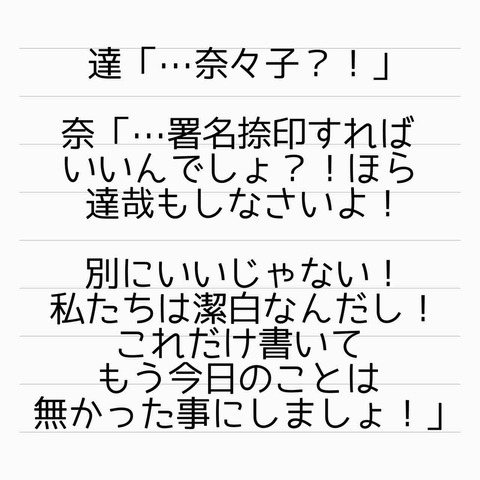 達「…奈々子？！」
奈「…署名捺印すれば
いいんでしょ？！ほら
達哉もしなさいよ！
別にいいじゃない！
私たちは潔白なんだし！
これだけ書いて
もう今日のことは
無かった事にしましょ！」